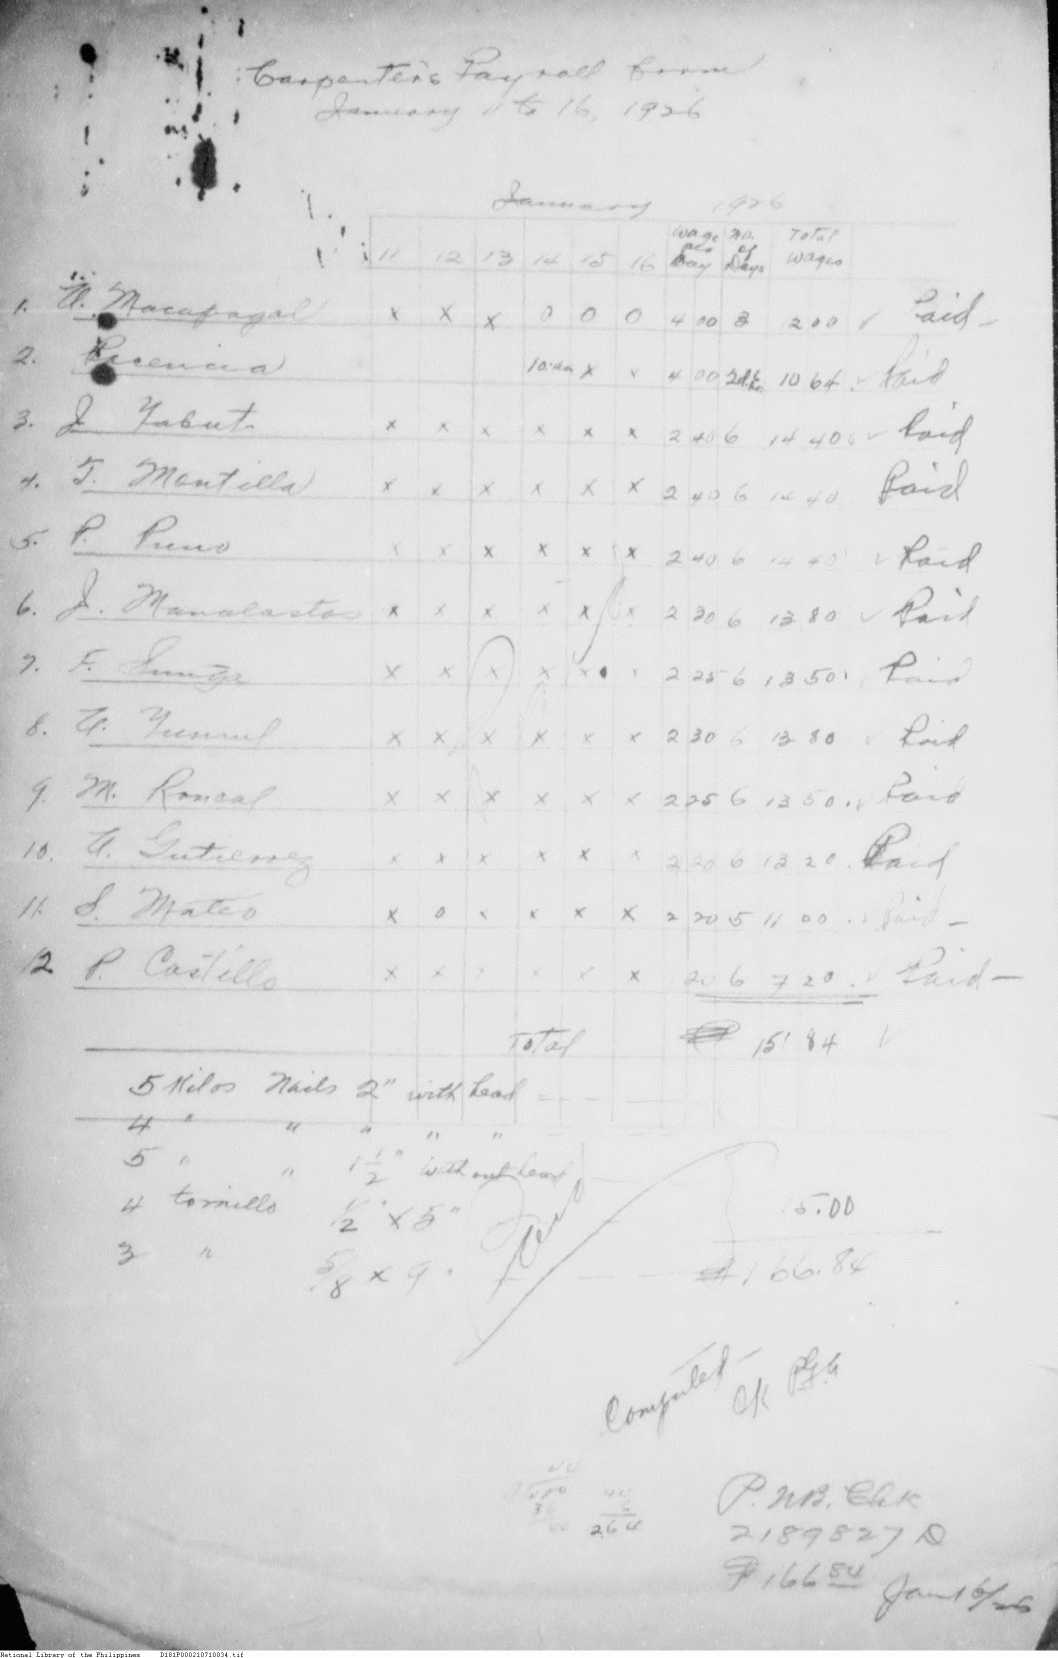 Carpenter's Payroll from
January 11 to 16, 1926
January 1926
11 12 13 14 15 16 Wage per Day No. of Days Total Wages
1. A. Macapagal x x x 0 0 0 4 00 3 12 00 ✓ Paid -
2. Placencia 10:am x x 4 00 10 64 ✓ Paid
3. J. Yabut x x x x x x 2 40 6 14 40 ✓ Paid
4. T. Mantilla x x x x x x 2 40 6 14 40 Paid
5. P. Puno x x x x x x 2 40 6 14 40 ✓ Paid
6. J. Manalastas x x x x x x 2 30 6 13 80 ✓ Paid
7. F. Sunga x x x x x x 2 25 6 13 50 Paid
8. A. Yumul x x x x x x 2 30 6 13 80 ✓ Paid
9. M. Roncal x x x x x x 2 25 6 13 50 ✓ Paid
10. A. Gutierrez x x x x x x 2 20 6 13 20 . Paid
11. S. Mateo x 0 x x x x 2 20 5 11 00 ✓ Paid -
12 P. Castillo x x x x x x 20 6 7 20 . ✓ Paid -
Total ₱ 151 84
5 Kilos Nails 2" with head - - -
4 " " " " "
5 " " 1 1/2" without head
4 tornillo 1/2" x 5"
15.00
3 " 5/8 x 9 "
₱ 166.84
Computed -
OK
264
P.N.B. Chk
2189827 D
₱ 166 84
Jan 16/26
National Library of the Philippines D181P000210710034.tif